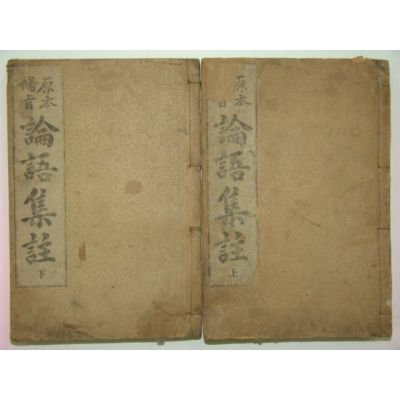 原本
論語集註
上
原本
備旨
論語集註
下